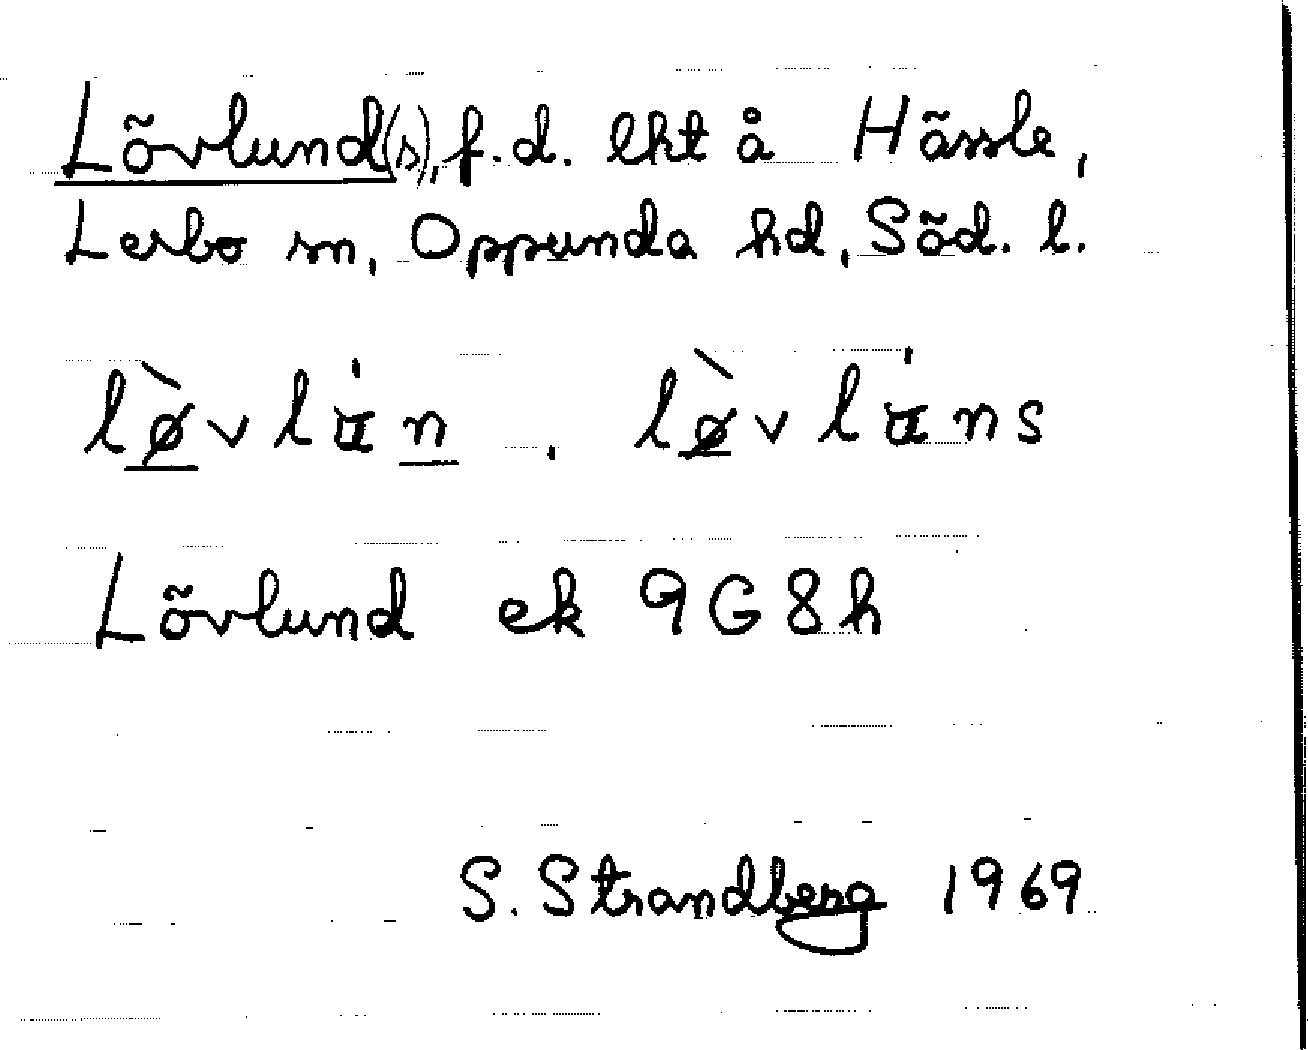 Lövlund(s), f.d. lht å Hässle,
Lerbo sn, Oppunda hd, Söd. l.
lø̀vlɯ́n, lø̀vlɯ́ns
Lövlund ek 9G8h
S. Strandberg 1969